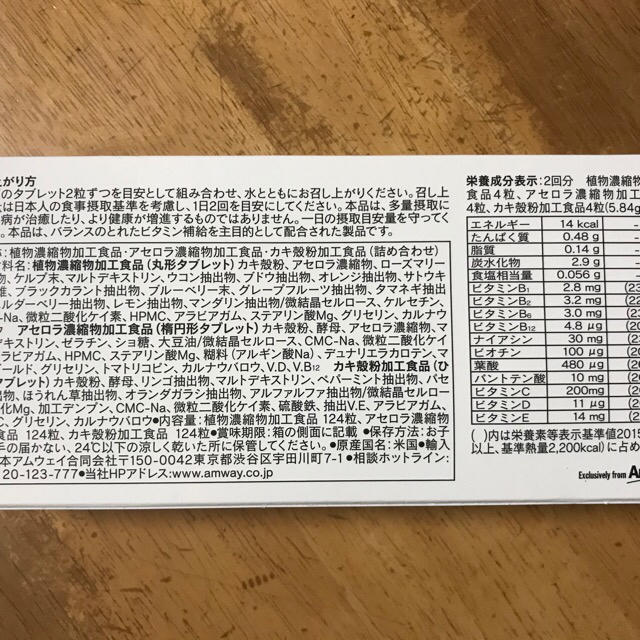 上がり方
のタブレット2粒ずつを目安として組み合わせ、水とともにお召し上がりください。召し上
は日本人の食事摂取基準を考慮し、1日2回を目安にしてください。本品は、多量摂取に
病が治癒したり、より健康が増進するものではありません。一日の摂取目安量を守ってく
。本品は、バランスのとれたビタミン補給を主目的として配合された製品です。
称:植物濃縮物加工食品・アセロラ濃縮物加工食品・カキ殻粉加工食品(詰め合わせ)
料名:植物濃縮物加工食品(丸形タブレット)カキ殻粉、アセロラ濃縮物、ローズマリー
物、ケルプ末、マルトデキストリン、ウコン抽出物、ブドウ抽出物、オレンジ抽出物、サトウキ
維、ブラックカラント抽出物、ブルーベリー末、グレープフルーツ抽出物、タマネギ抽出
ルダーベリー抽出物、レモン抽出物、マンダリン抽出物/微結晶セルロース、ケルセチン、
-Na、微粒二酸化ケイ素、HPMC、アラビアガム、ステアリン酸Mg、グリセリン、カルナウ
ウ アセロラ濃縮物加工食品(楕円形タブレット)カキ殻粉、酵母、アセロラ濃縮物、マ
デキストリン、ゼラチン、ショ糖、大豆油/微結晶セルロース、CMC-Na、微粒二酸化ケイ
アラビアガム、HPMC、ステアリン酸Mg、糊料(アルギン酸Na)、デュナリエラカロテン、マ
ールド、グリセリン、トマトリコピン、カルナウバロウ、V.D、V.B12 カキ殻粉加工食品(ひ
タブレット)カキ殻粉、酵母、リンゴ抽出物、マルトデキストリン、ペパーミント抽出物、パセ
出物、ほうれん草抽出物、オランダガラシ抽出物、アルファルファ抽出物/微結晶セルロー
化Mg、加工デンプン、CMC-Na、微粒二酸化ケイ素、硫酸鉄、抽出V.E、アラビアガム、
C、グリセリン、カルナウバロウ●内容量:植物濃縮物加工食品 124粒、アセロラ濃縮物
食品 124粒、カキ殻粉加工食品 124粒●賞味期限:箱の側面に記載 ●保存方法:お子
手の届かない、24℃以下の涼しく乾いた所に保管してください。●原産国名:米国●輸入
本アムウェイ合同会社〒150-0042東京都渋谷区宇田川町7-1●相談ホットライン:
20-123-777●当社HPアドレス:www.amway.co.jp
栄養成分表示:2回分 植物濃縮物
食品4粒、アセロラ濃縮物加工
4粒、カキ殻粉加工食品4粒(5.84g
エネルギー 14 kcal
たんぱく質 0.48 g
脂質 0.14 g
炭水化物 2.9 g
食塩相当量 0.056 g
ビタミンB1 2.8 mg
ビタミンB2 3.2 mg
ビタミンB6 3.0 mg
ビタミンB12 4.8 μg
ナイアシン 30 mg
ビオチン 100 μg
葉酸 480 μg
パントテン酸 10 mg
ビタミンC 200mg
ビタミンD 11 μg
ビタミンE 14 mg
( )内は栄養素等表示基準値2015
以上、基準熱量2,200kcal)に占め
Exclusively from